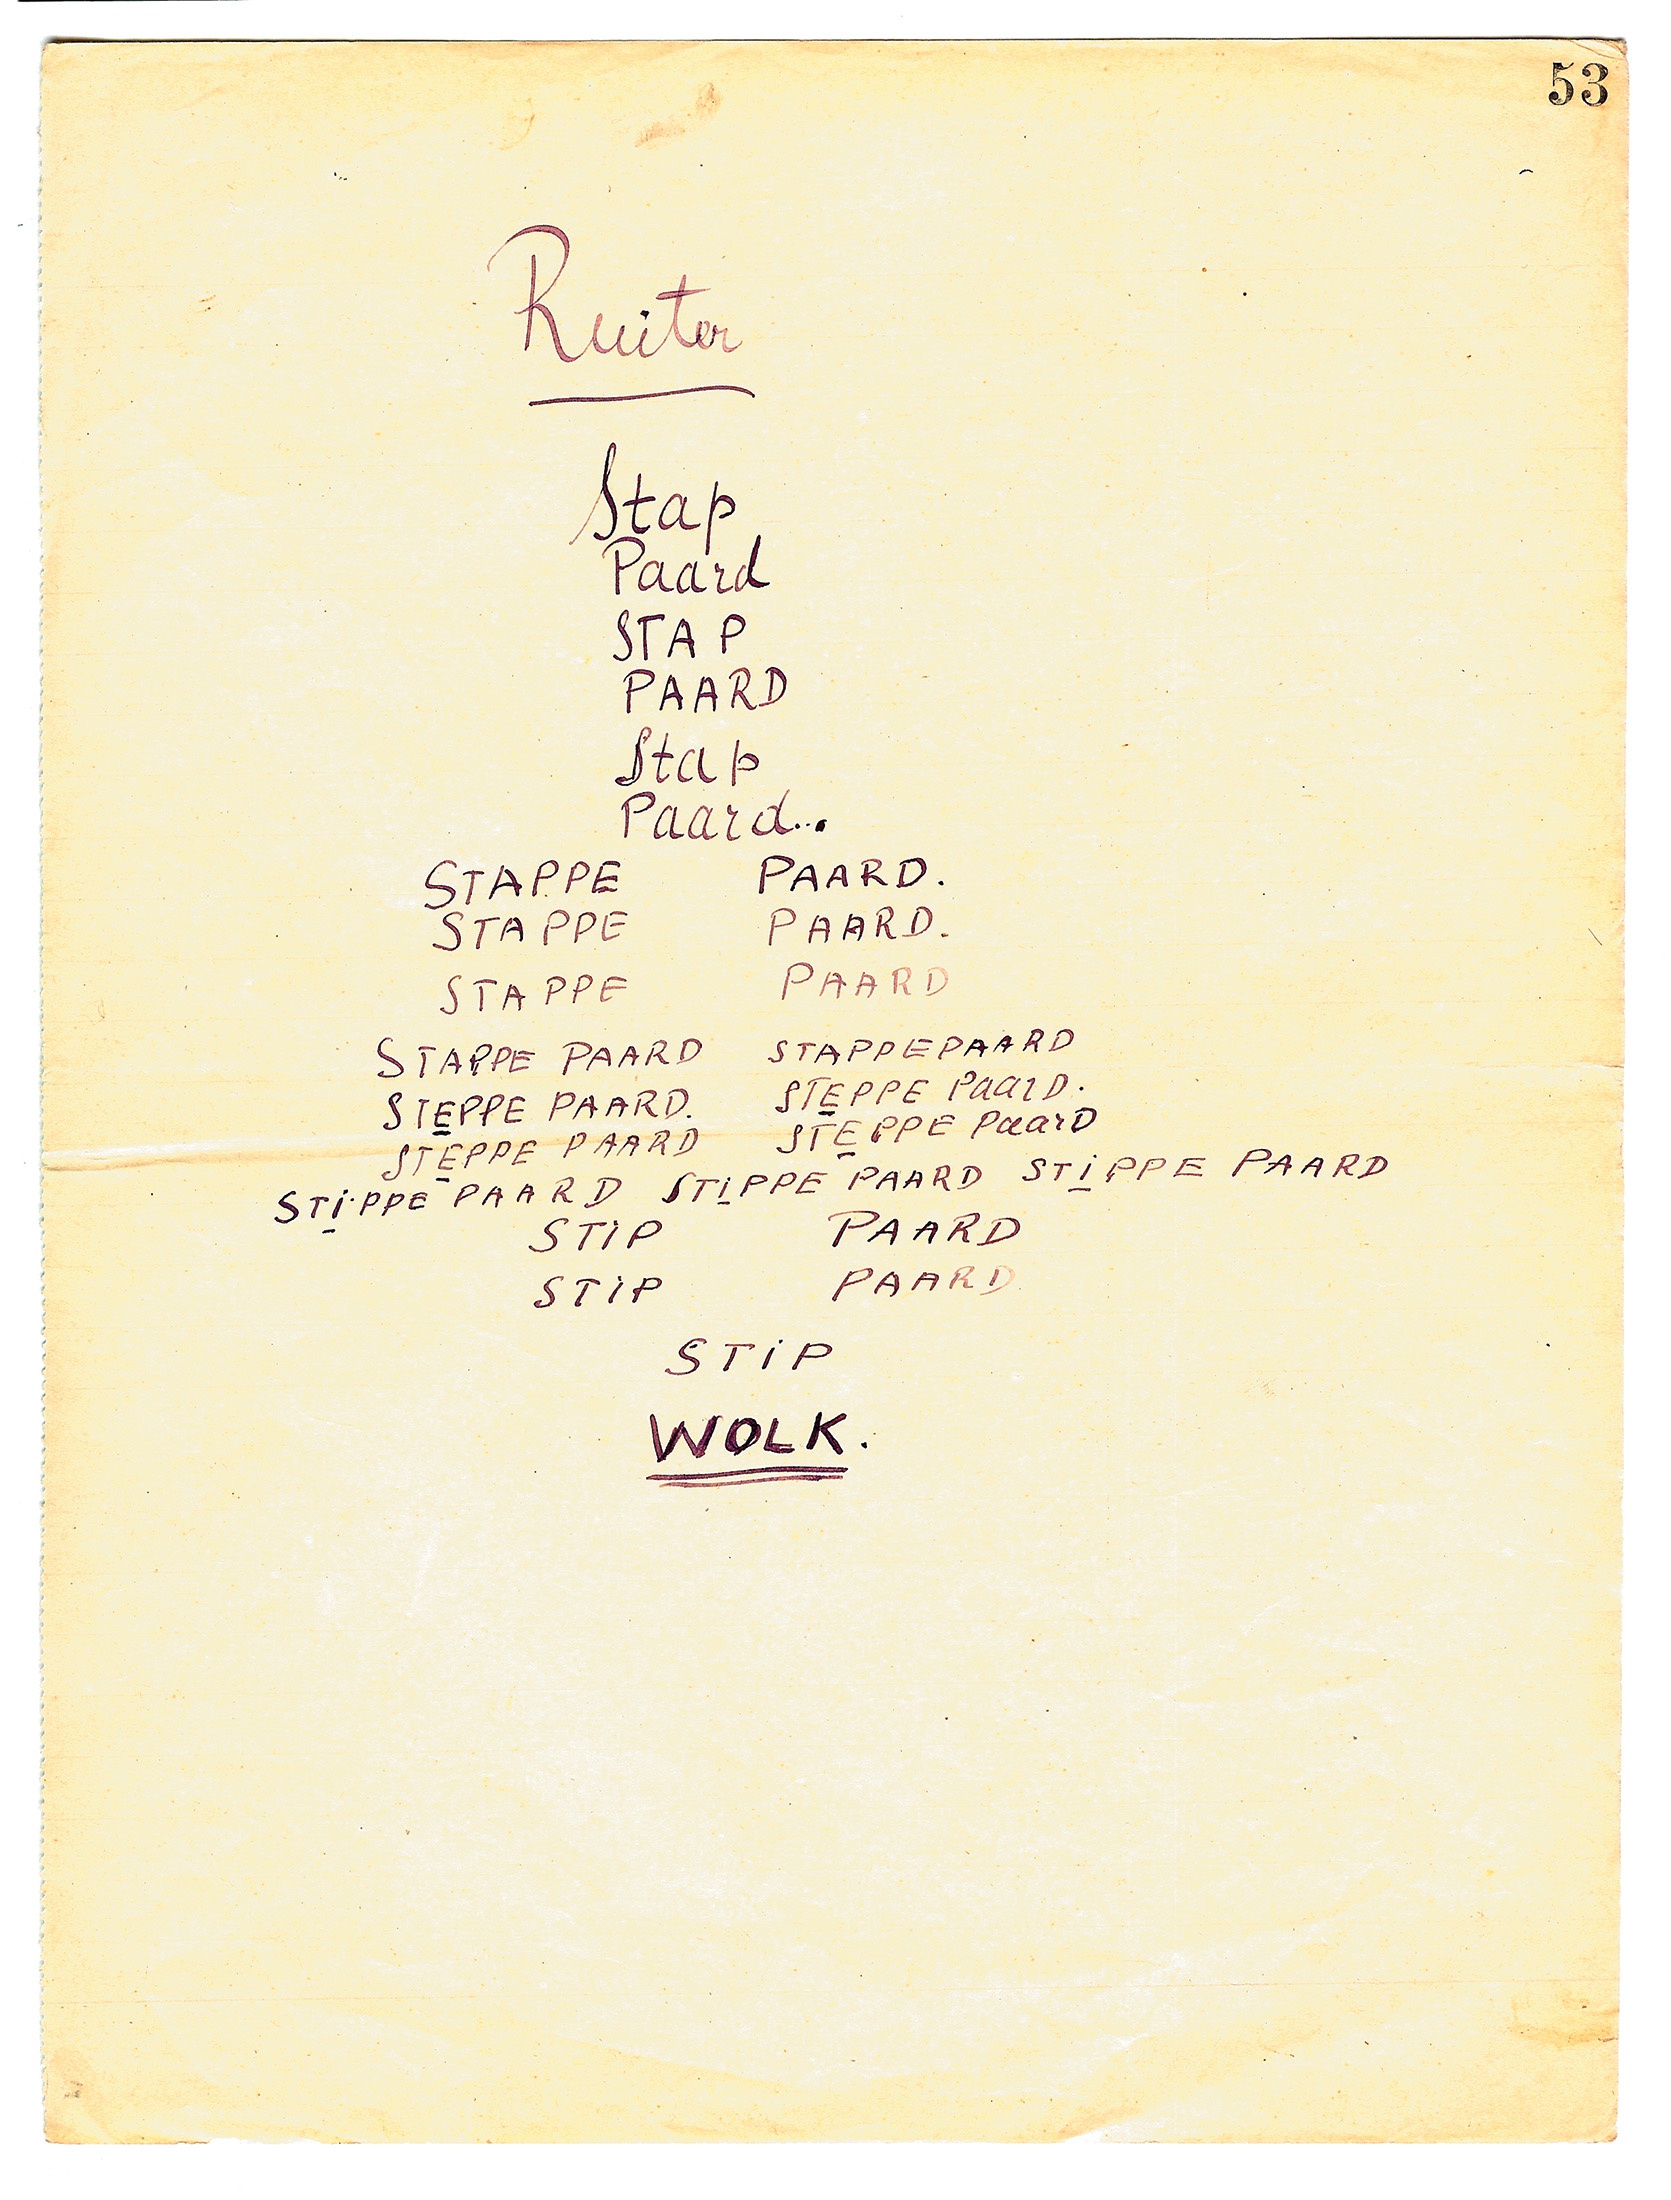 53
Ruiter
Stap
Paard
STAP
PAARD
Stap
Paard...
STAPPE PAARD.
STAPPE PAARD.
STAPPE PAARD
STAPPE PAARD STAPPEPAARD
STEPPE PAARD. STEPPE PaaRD.
STEPPE PAARD STEPPE PaarD
STiPPE PAARD STiPPE PAARD STiPPE PAARD
STiP PAARD
STiP PAARD
STiP
WOLK.